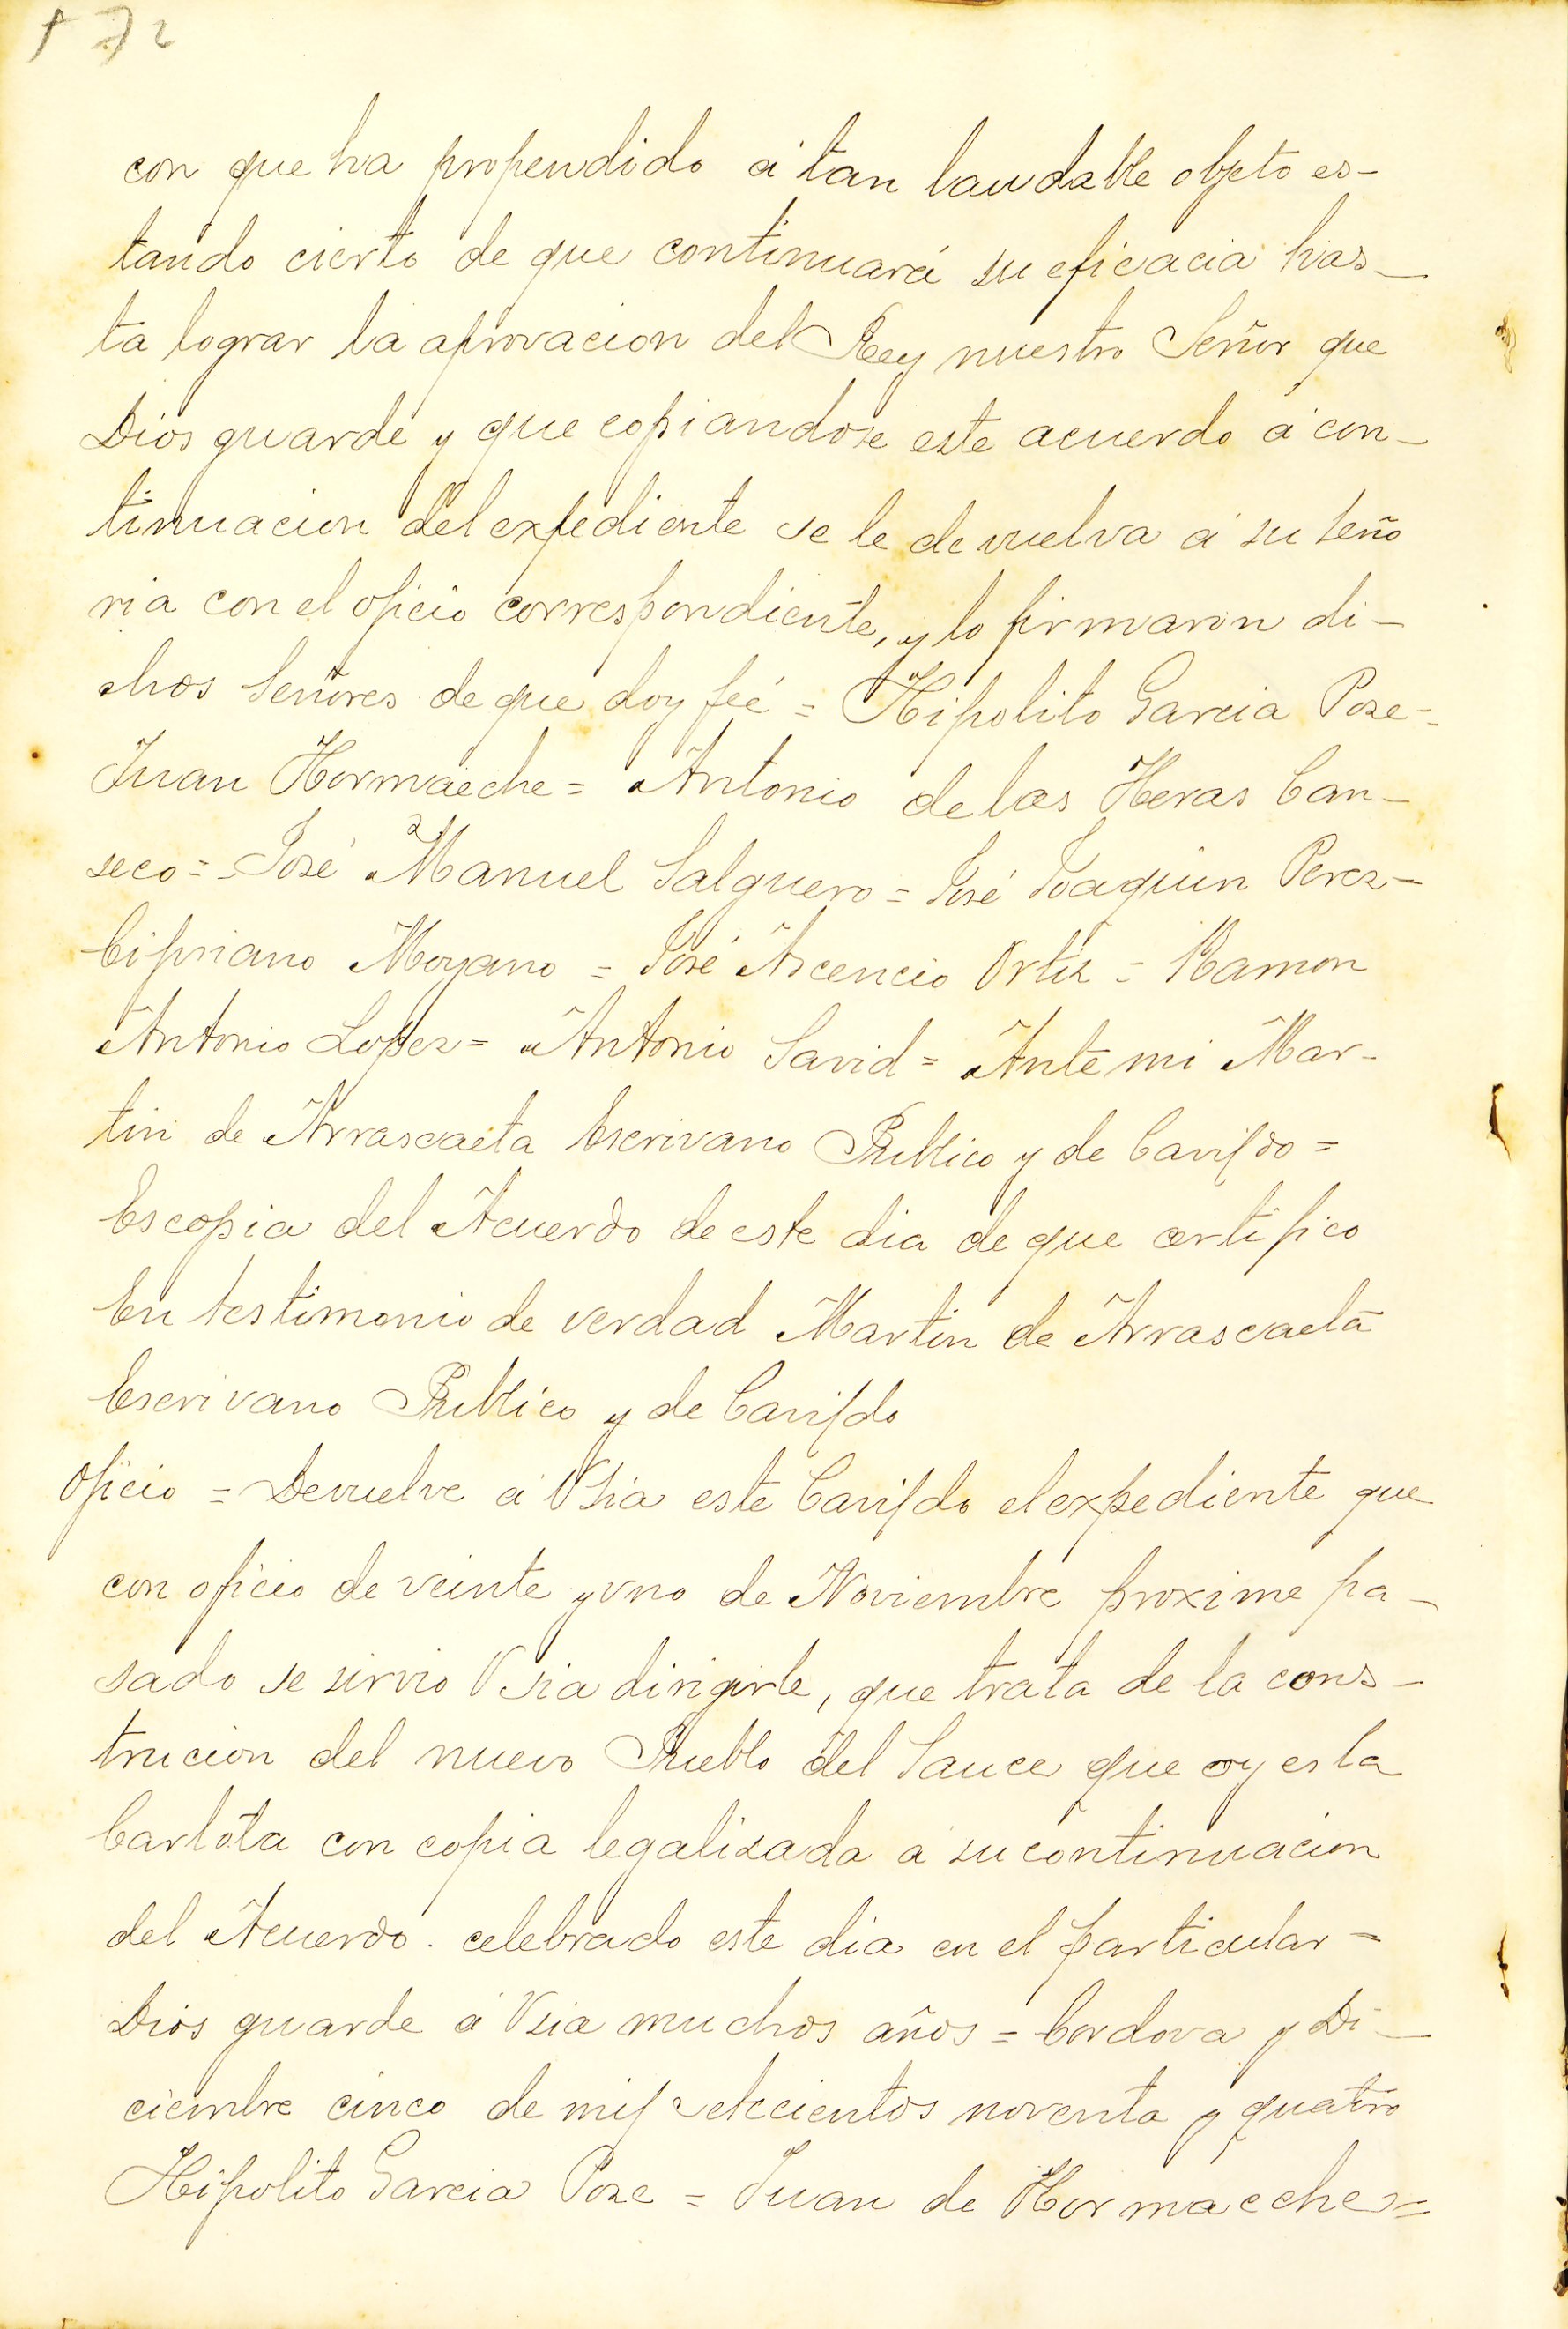 172
con que ha propendido á tan laudable objeto es-
tando cierto de que continuará su eficacia has-
ta lograr la aprovacion del Rey nuestro Señor que
Dios guarde y que copiandose este acuerdo á con-
tinuacion del expediente se le devuelva á su seño
ria con el oficio correspondiente, y lo firmaron di-
chos Señores de que doy feé = Hipolito Garcia Pose-
Juan Hormaeche = Antonio de las Heras Can-
seco = José Manuel Salguero = José Joaquin Perez-
Cipriano Moyano = José Ascencio Ortiz = Ramon
Antonio Lopez = Antonio Savid = Ante mi Mar-
tin de Arrascaeta Escrivano Publico y de Cavildo =
Es copia del Acuerdo de este dia de que certifico
En testimonio de verdad Martin de Arrascaeta
Escrivano Publico y de Cavildo
Oficio = Devuelve á Vsia este Cavildo el expediente que
con oficio de veinte y uno de Noviembre proximo pa-
sado se sirvio Vsia dirigirle, que trata de la cons-
trucion del nuevo Pueblo del Sauce que oy es la
Carlota con copia legalizada a su continuacion
del Acuerdo celebrado este dia en el particular =
Dios guarde á Vsia muchos años = Cordova y Di-
ciembre cinco de mil setecientos noventa y quatro
Hipolito Garcia Pose = Juan de Hormaeche =